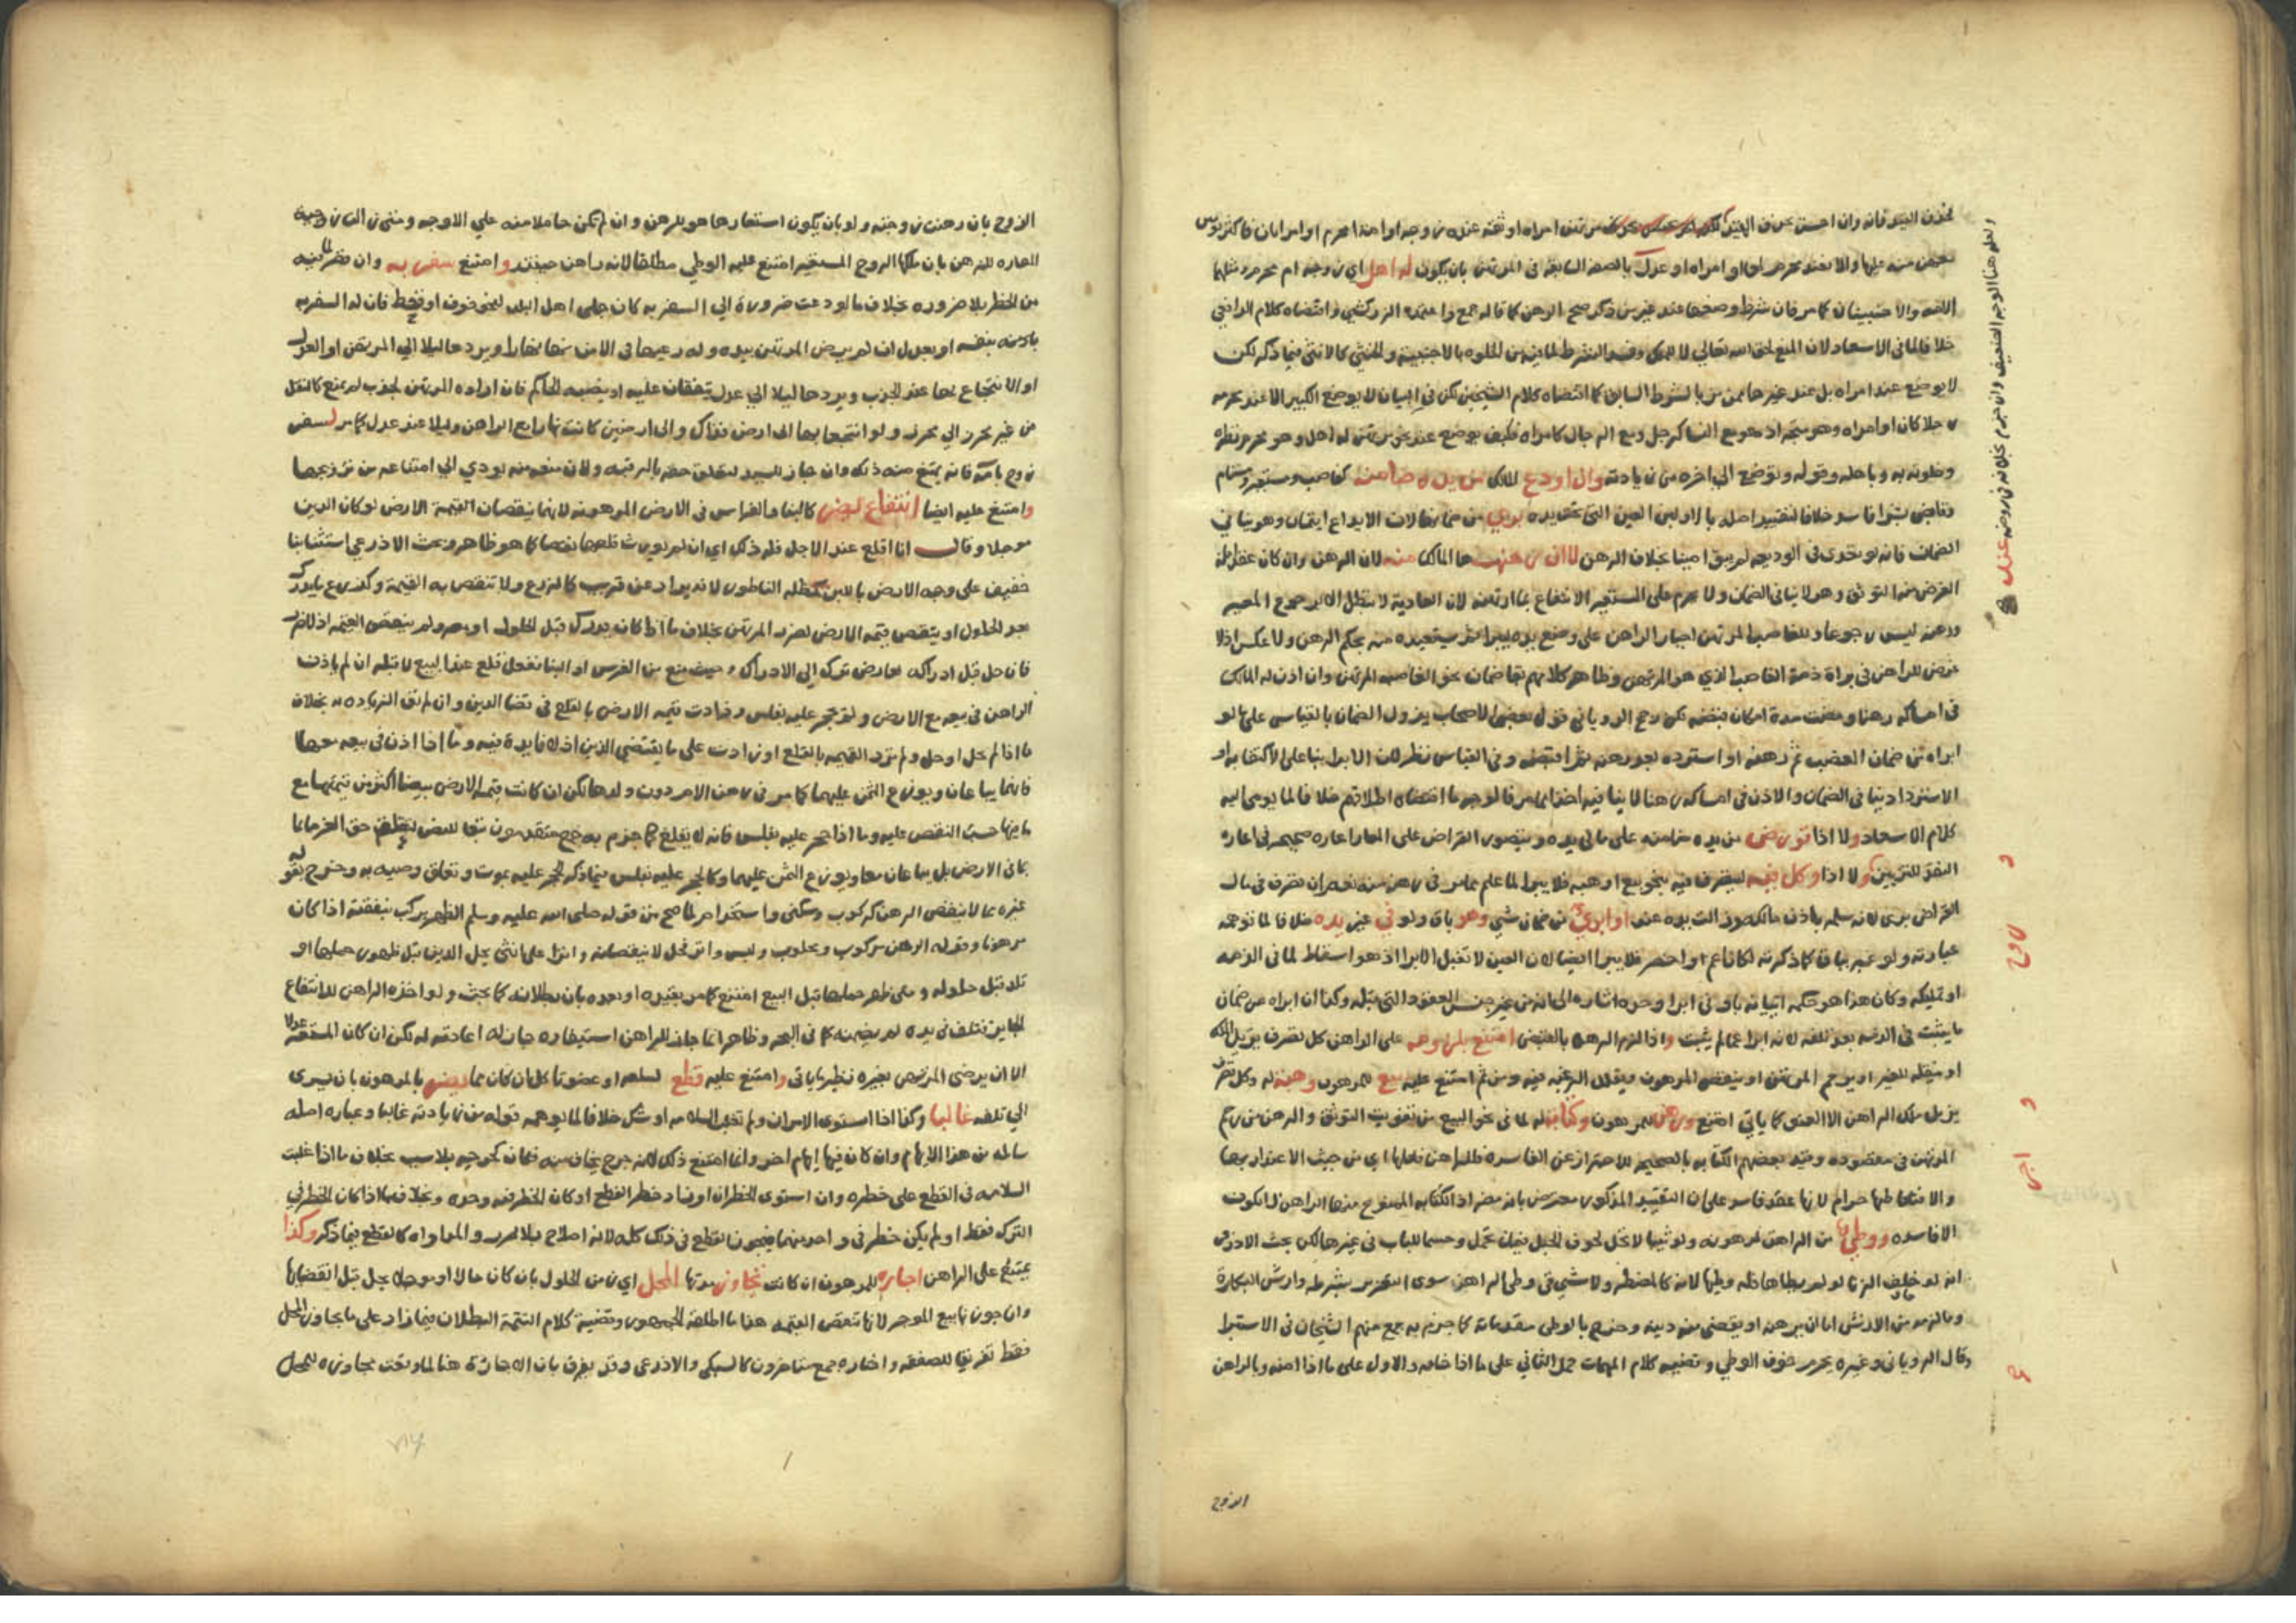 بخلاف العبد فانه وان احسن نحو مرتهن امراه او ثقه عنده زوجه او امه او محرم او امراتان فاكثر يؤمن
معهن منه عليها والا فعند محرم لها او امراه او عدل بالصفه السابقه في المرتهن بان يكون له اهل اي زوجه ام محرم ومثلهما
الثقه والاجنبيتان كما مر فان شرط وضعها عند غير من ذكر صح الرهن كما قاله جمع واعتمده الزركشي واقتضاه كلام الرافعي
خلافا لما في الاسعاد لان المنع لحق الله تعالي لا للملك وفسد الشرط لما فيه من الخلوه بالاجنبيه والخنثي كالانثي فيما ذكر لكن
لا يوضع عند امراه بل عند غيرها ممن مر بالشرط السابق كما اقتضاه كلام الشيخين لكن في البيان لا يوضع الكبير الا عند محرمه
رجلا كان او امراه وهو متجه اذ هو مع النسا كرجل ومع الرجال كامراه فكيف يوضع عند نحو مرتهن له اهل وهو محرم نظره
وخلوته به وباهله وقوله وتوضع الي اخره من زيادته وان اودع المالك من يده ضامنه كغاصب ومستعير ومستام
وقابض بشرا فاسد خلافا لتقييد اصله بالاولين العين التي تحت يده بري من ضمانها لان الايداع ائتمان وهو ينافي
الضمان فانه لو تعدي في الوديعه لم يبق امينا بخلاف الرهن لا ان رهنت ها المالك منه لان الرهن وان كان عقد امانه
الغرض منه التوثق وهو لا ينافي الضمان ولا يحرم على المستعير الانتفاع بما ارتهنه لان العارية لا تبطل الا برجوع المعير
ورهنه ليس رجوعا وللغاصب المرتهن اجبار الراهن على وضع يده ليبرا ثم يستعيده منه بحكم الرهن ولا عكس اذ لا
غرض للراهن في براة ذمة الغاصب الذي هو المرتهن وظاهر كلامهم بقا ضمان نحو الغاصب المرتهن وان اذن له المالك
في امساكه رهنا ومضت مدة امكان قبضه لكن رجح الروياني قول بعض الاصحاب يزول الضمان بالقياس على ما لو
ابراه من ضمان الغصب ثم رهنه او استرده بعد رهنه ثم اقبضه وفي القياس نظر لان الابرا
الاسترداد ينافي الضمان والاذن في امساكه رهنا لا ينافيه اخذا مما مر فالاوجه ما اقتضاه اطلاقهم خلافا لما يومي اليه
كلام الاسعاد ولا اذا قورض من يده ضامنه على ما في يده ويتصور القراض على المعار اعاره صحيحه في اعارة
النقد للتزيين ولا اذا وكل فيه ليتصرف فيه بنحو بيع او هبه فلا يبرا لما علم مما مر في رهنه منه نعم ان تصرف في مال
القراض بري لانه سلمه باذن مالكه وزالت يده عنه او ابري من ضمان شي وهو باق ولو في غير يده خلافا لما توهمه
عبارته ولو عبر بباق كما ذكرته لكان اعم واخصر فلا يبرا ايضا لان العين لا تقبل الابرا اذ هو اسقاط لما في الذمه
او تمليكه وكان هذا هو حكمه اتيانه باو في ابرا وحده اشاره الي انه من غير جنس العقود التي قبله وكذا ان ابراه عن ضمان
ما يثبت في الذمه بعد تلفه لانه ابرا عما لم يثبت واذا لزم الرهن بالقبض امتنع بلزومه على الراهن كل تصرف يزيل الملك
او ينقله للغير او يزحم المرتهن او ينقص المرهون ويقلل الرغبه فيه ومن ثم امتنع عليه بيع للمرهون وهبته له وكل تصرف
يزيل ملك الراهن الا العتق كما ياتي امتنع ورهن للمرهون وكتابه له لما في نحو البيع من تفويت التوثق والرهن من زحم
المرتهن في مقصوده وقيد بعضهم الكتابه بالصحيحه للاحتراز عن الفاسده فللراهن فعلها اي من حيث الاعتداد بها
والا فتعاطيها حرام لانها عقد فاسد على ان التقييد المذكور معترض بانه مضر اذ الكتابه الممنوع منها الراهن لا تكون
الا فاسده ووطي من الراهن لمرهونه ولو ثيبا لا تحبل لخوف الحبل فيمن تحمل وحسما للباب في غيرها لكن بحث الاذرعي
انه لو خاف الزنا لو لم يطاها فله وطيها لانه كالمضطر ولا شي في وطي الراهن سوي التعزير بشرطه وارش البكارة
وبالزمه من الارش اما ان يرهنه او يقضي من دينه وخرج بالوطي مقدماته كما جزم به جمع منهم الشيخان في الاستبرا
وقال الروياني وغيره يحرم خوف الوطي وقضيه كلام المهمات حمل الثاني على ما اذا خافه والاول على ما اذا امنه وبالراهن
ولعله هنا الوجه الضعيف وان جزم بخلافه في روضه
عدل
الزوج
الزوج بان رهنت زوجته ولو بان يكون استعارها هو للرهن وان لم تكن حاملا منه علي الاوجه ومتى زوجته
المعاره للرهن بان ملكها الزوج المستعير امتنع عليه الوطي مطلقا لانه راهن حينئذ وامتنع سفر به وان قصر لما فيه
من الخطر بلا ضروره بخلاف ما لو دعت ضرورة الي السفر به كان جلى اهل البلد لنحو خوف او قحط فان له السفر به
يامنه بنفسه او بعدل ان لم يرض المرتهن بيده وله رعيها في الامن نهارا ويردها ليلا الي المرتهن او العدل
او الانتجاع بها عند الجدب ويردها ليلا الي عدل يتفقان عليه او ينصبه الحاكم فان اراده المرتهن لجدب لم يمنع كالنقل
من غير محرز الي محرز ولو انتجعا بها الى ارض فذاك والى ارضين كانت نهارا مع الراهن وليلا عند عدل كما مر لسفر
زوج بامته فانه يمتنع منه ذلك وان جاز للسيد لتعلق حقه بالرقبه ولان منعه منه يودي الي امتناعه من تزويجها
وامتنع عليه ايضا انتفاع يضر كالبنا والغراس في الارض المرهونه لانهما ينقصان القيمة الارض لو كان الدين
موجلا وقال انا اقلع عند الاجل فله ذلك اي ان لم يورث قلعها نقصا كما هو ظاهر وبحث الاذرعي استثنا بنا
خفيف على وجه الارض باللبن كمظله الناطور لانه يزاد عن قرب كالزرع ولا تنقص به القيمة وكذرع ما يدرك
نحو الحلول او ينقص قيمه الارض لضرر المرتهن بخلاف ما اذا كان يدرك قبل الحلول او بعده ولم ينقص القيمه اذ لا ضرر
فان حل قبل ادراكه لعارض ترك الي الادراك وحيث منع من الغرس او البنا ففعل قلع عند البيع لا قبله ان لم ياذن
الراهن في بيعه مع الارض ولم يحجر عليه بفلس وزادت قيمه الارض بالقلع في قضا الدين وان لم تف الزياده به بخلاف
ما اذا لم يحل او حل ولم تزد القيمه بالقلع او زادت على ما يقتضي الدين اذ لا فايدة فيه وما اذا اذن في بيعه معها
فانهما يباعان ويوزع الثمن عليهما كما مر في رهن الام دون ولدها لكن ان كانت قيمه الارض بيضا اكثر من قيمتها مع
ما فيها حسب النقص عليه وما اذا حجر عليه بفلس فانه لا يقلع كما جزم به جمع متقدمون تبعا للنص لتعلق حق الغرما بما
بما في الارض بل يباعان معا ويوزع الثمن عليهما وكالحجر عليه بفلس فيما ذكر الحجر عليه بموت وتعلق وصيه به وخرج بقوله
غيره ما لا ينقص الرهن كركوب وسكنى واستخدام لما صح من قوله صلى الله عليه وسلم الظهر يركب بنفقته اذا كان
مرهونا وقوله الرهن مركوب ومحلوب ولبس وانزا فحل لا ينقصانه وانزا على انثي يحل الدين قبل ظهور حملها او
تلد قبل حلوله ومتى ظهر حملها قبل البيع امتنع كما مر بقيده او بعده بان بطلانه كما بحث ولو اخذه الراهن للانتفاع
الجايز فتلف في يده لم يضمنه كما في البحر وظاهر انما جاز للراهن استيفاؤه جاز له اعادته له لكن ان كان المستعير عدلا
الا ان يرضى المرتهن بغيره نظير ما ياتي وامتنع عليه قطع لسلعه او عضو متاكل ان كان مما يضر بالمرهون بان يسري
الي تلفه غالبا وكذا اذا استوي الامران ولم تغلب السلامه او شكل خلافا لما يوهمه قوله من زيادته غالبا وعباره اصله
سالمه من هذا الابهام وان كان فيها ابهام اخر وانما امتنع ذلك لانه جرح يخاف منه فكان كجرحه بلا سبب بخلاف ما اذا غلبت
السلامه في القطع على خطره وان استوى الخطران او زاد خطر القطع او كان الخطر فيه وحده وبخلاف ما اذا كان الخطر في
الترك فقط او لم يكن خطر في واحد منهما فيجوز القطع في ذلك كله لانه اصلاح بلا ضرر والمداواه كالقطع فيما ذكر وكذا
يمتنع على الراهن اجاره للمرهون ان كانت تجاوز مدتها المحل اي زمن الحلول بان كان حالا او موجلا يحل قبل انقضائها
وان جوزنا بيع الموجر لانها تنقص القيمه هذا ما اطلقه الجمهور وقضية كلام التتمة البطلان فيما زاد على ما يجاوز المحل
فقط تفريقا للصفقه واختاره جمع متاخرون كالسبكي والاذرعي وقد يفرق بان الاجارة هنا لما وقعت مجاوزه للمحل